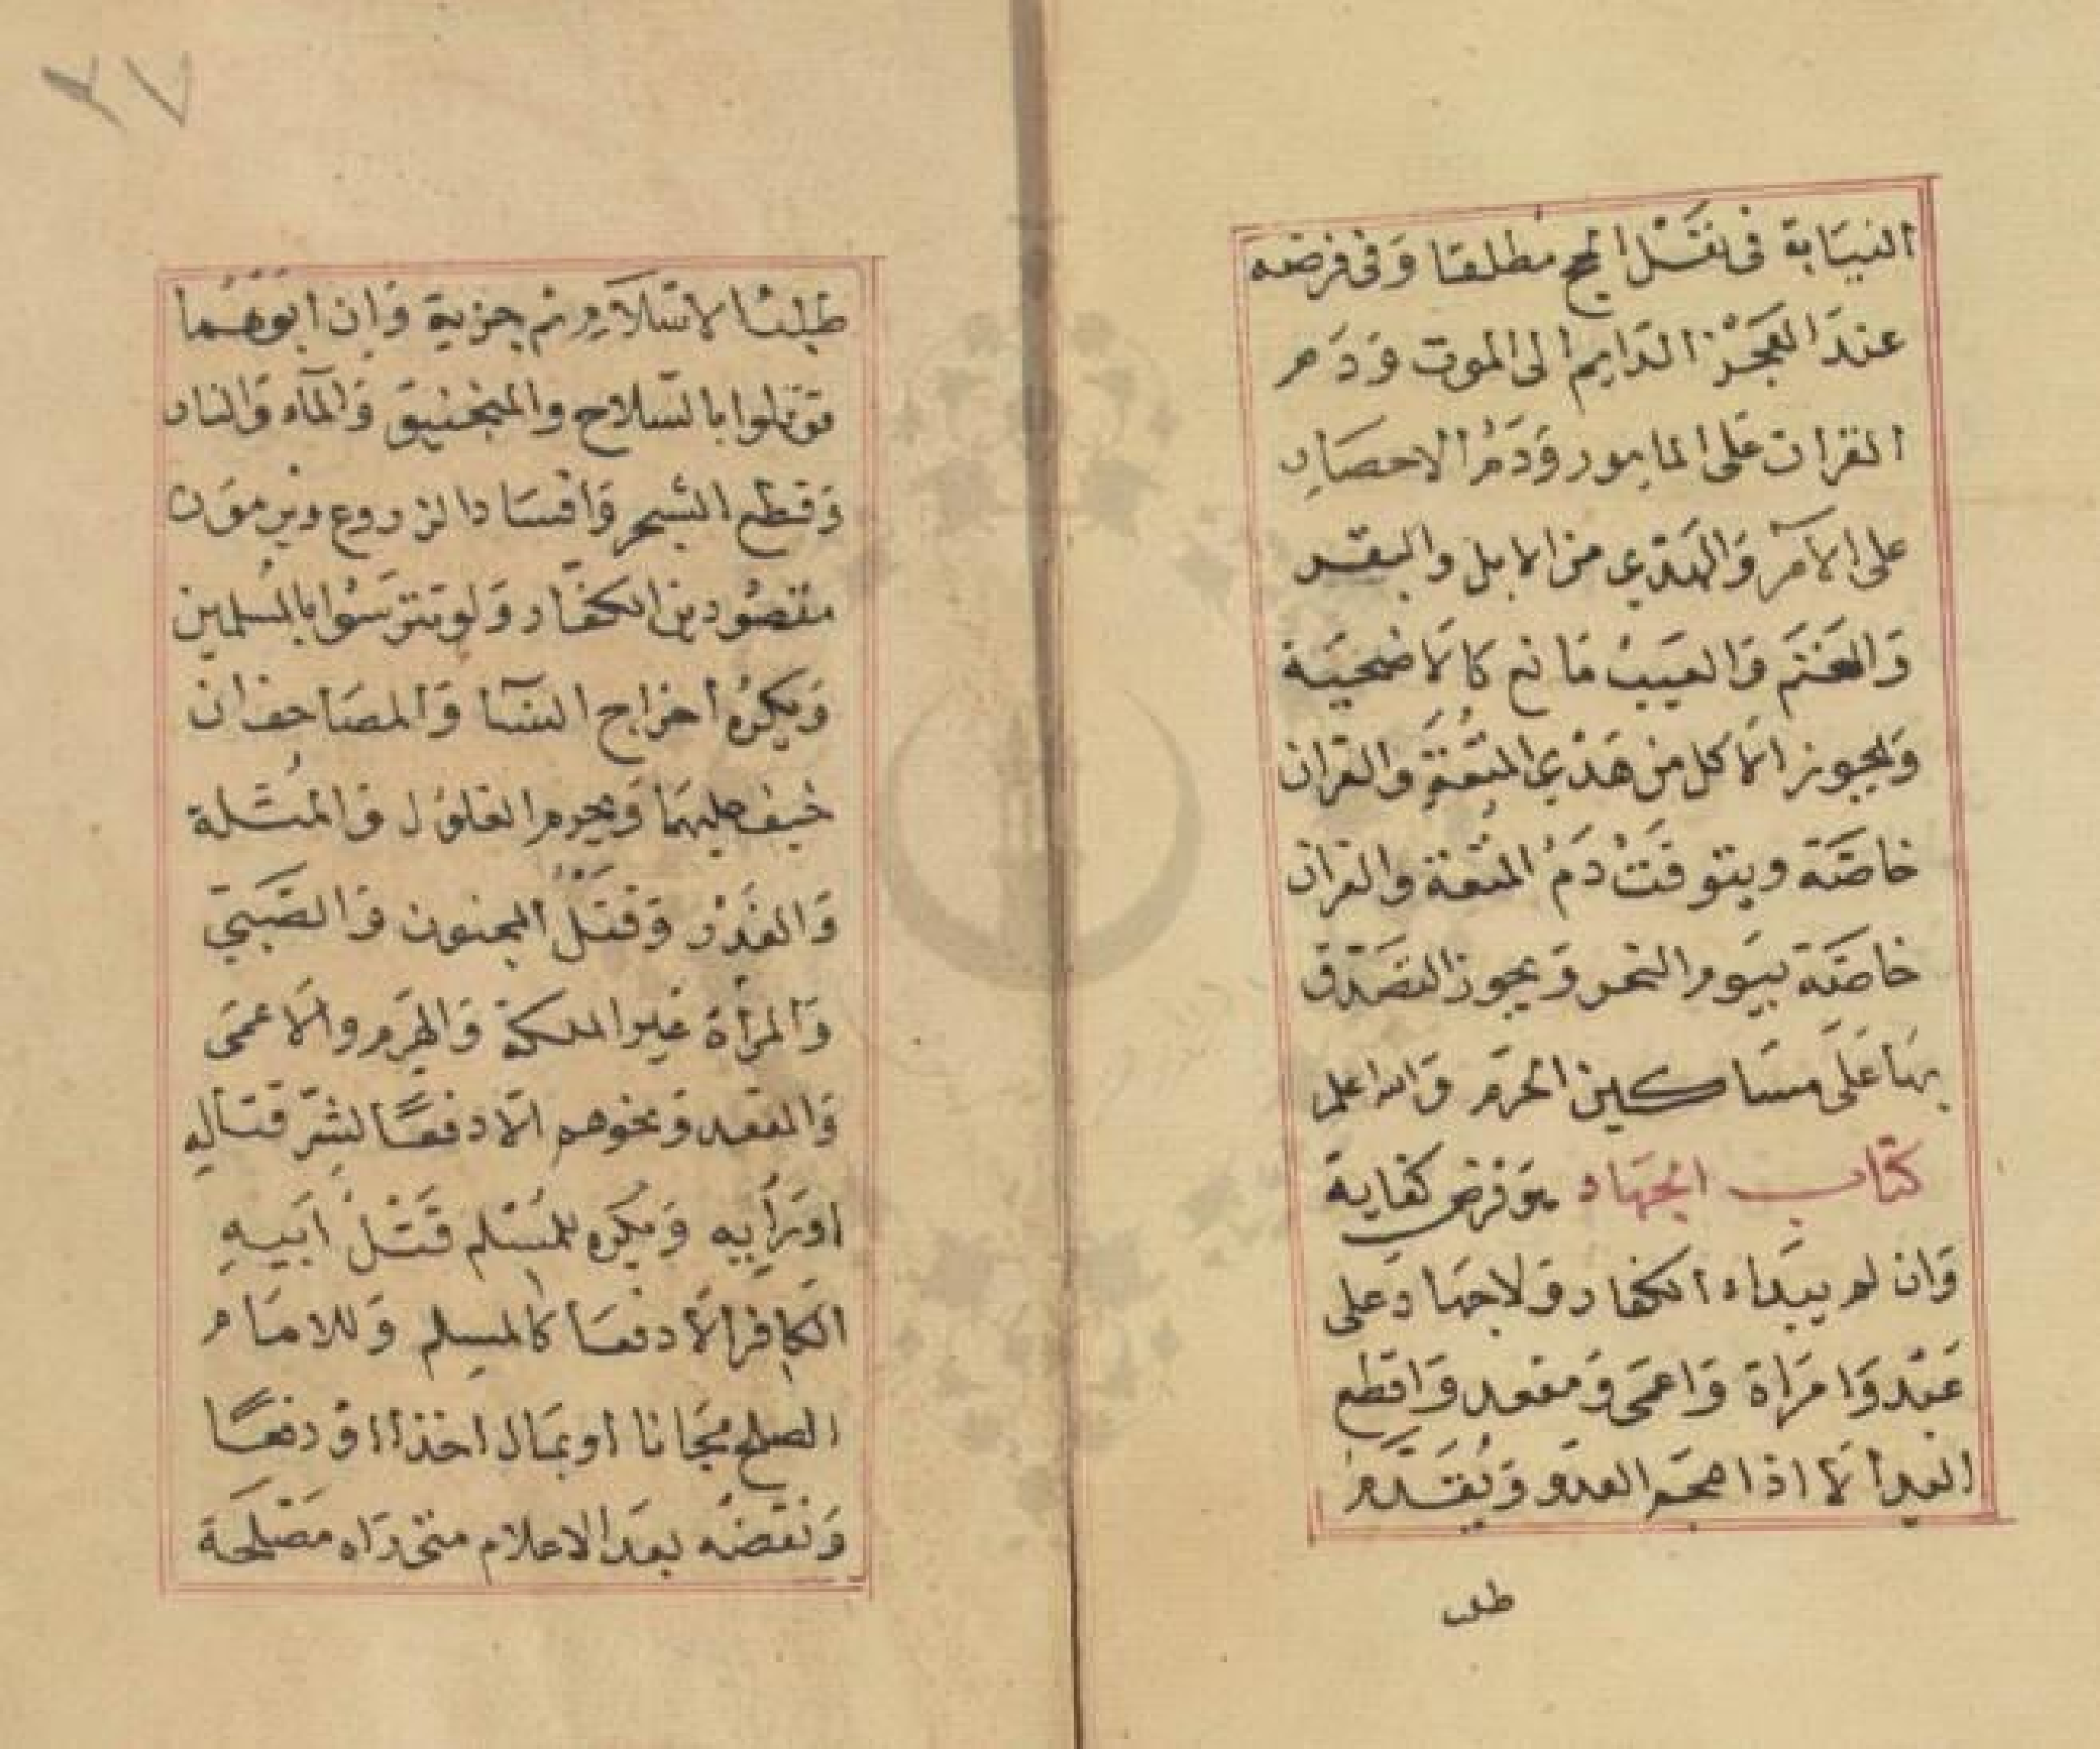 النيَابة فى نفَل الحج مطلقا وَفى فرضه
عندَ العَجْز الدَايم الى الموت وَدَم
القران عَلى المامور وَدَمُ الاحصَار
على الآمر وَالهَدْي من الابل والبقر
وَالغَنَم وَالعَيبُ مَانع كالاَضحيَة
وَيجوز الاَكل مِن هَدْي المتعَةِ وَالقران
خاصَّة ويتوقتُ دَمُ المتعَة والقران
خاصَّة بيَوم النحر وَيجوز التصَدق
بهَا عَلَى مسَاكين الحَرَم وَالله اعلم
كتاب الجهَاد هوَ فرض كفاية
وَان لم يبدَاء الكفار وَلا جهَاد على
عَبْد وَامرَاة وَاعمَى وَمقعد وَاقطع
اليد اِلاّ اذا هجَم العدو وَيُقَدَّم
طلب
٢٧
طلبُ الاسْلام ثم جزية وَان ابوهُما
قوتلوا بالسّلاح والمنجنيق وَالمآء وَالنار
وَقطع الشجر وَافسَاد الزروع ويرموَن
مقصُودين الكفّار وَلو تترسُوا بالمسلمين
وَيكرَهُ اخراج النسَآ وَالمصَاحف ان
خيف عليهمَا وَيحرم الغلوُل وَالمُثلة
وَالغدْر وَقَتلُ المجنون وَالصَّبيّ
وَالمرْأة غير الملكة وَالهَرِم والاَعمَى
وَالمقعد وَنحوهم الاّ دفعًا لشرّ قتاله
اوْ رَأيِه وَيكره للمُسْلم قَتْلُ اَبيهِ
الكافر الاّ دفعَا كالمسلم وَللامَام
الصلح مجَانا او بمَال اخذا اوْ دفعًا
وَنقضُه بعدَ الاعلام متى رَاه مَصْلحَة